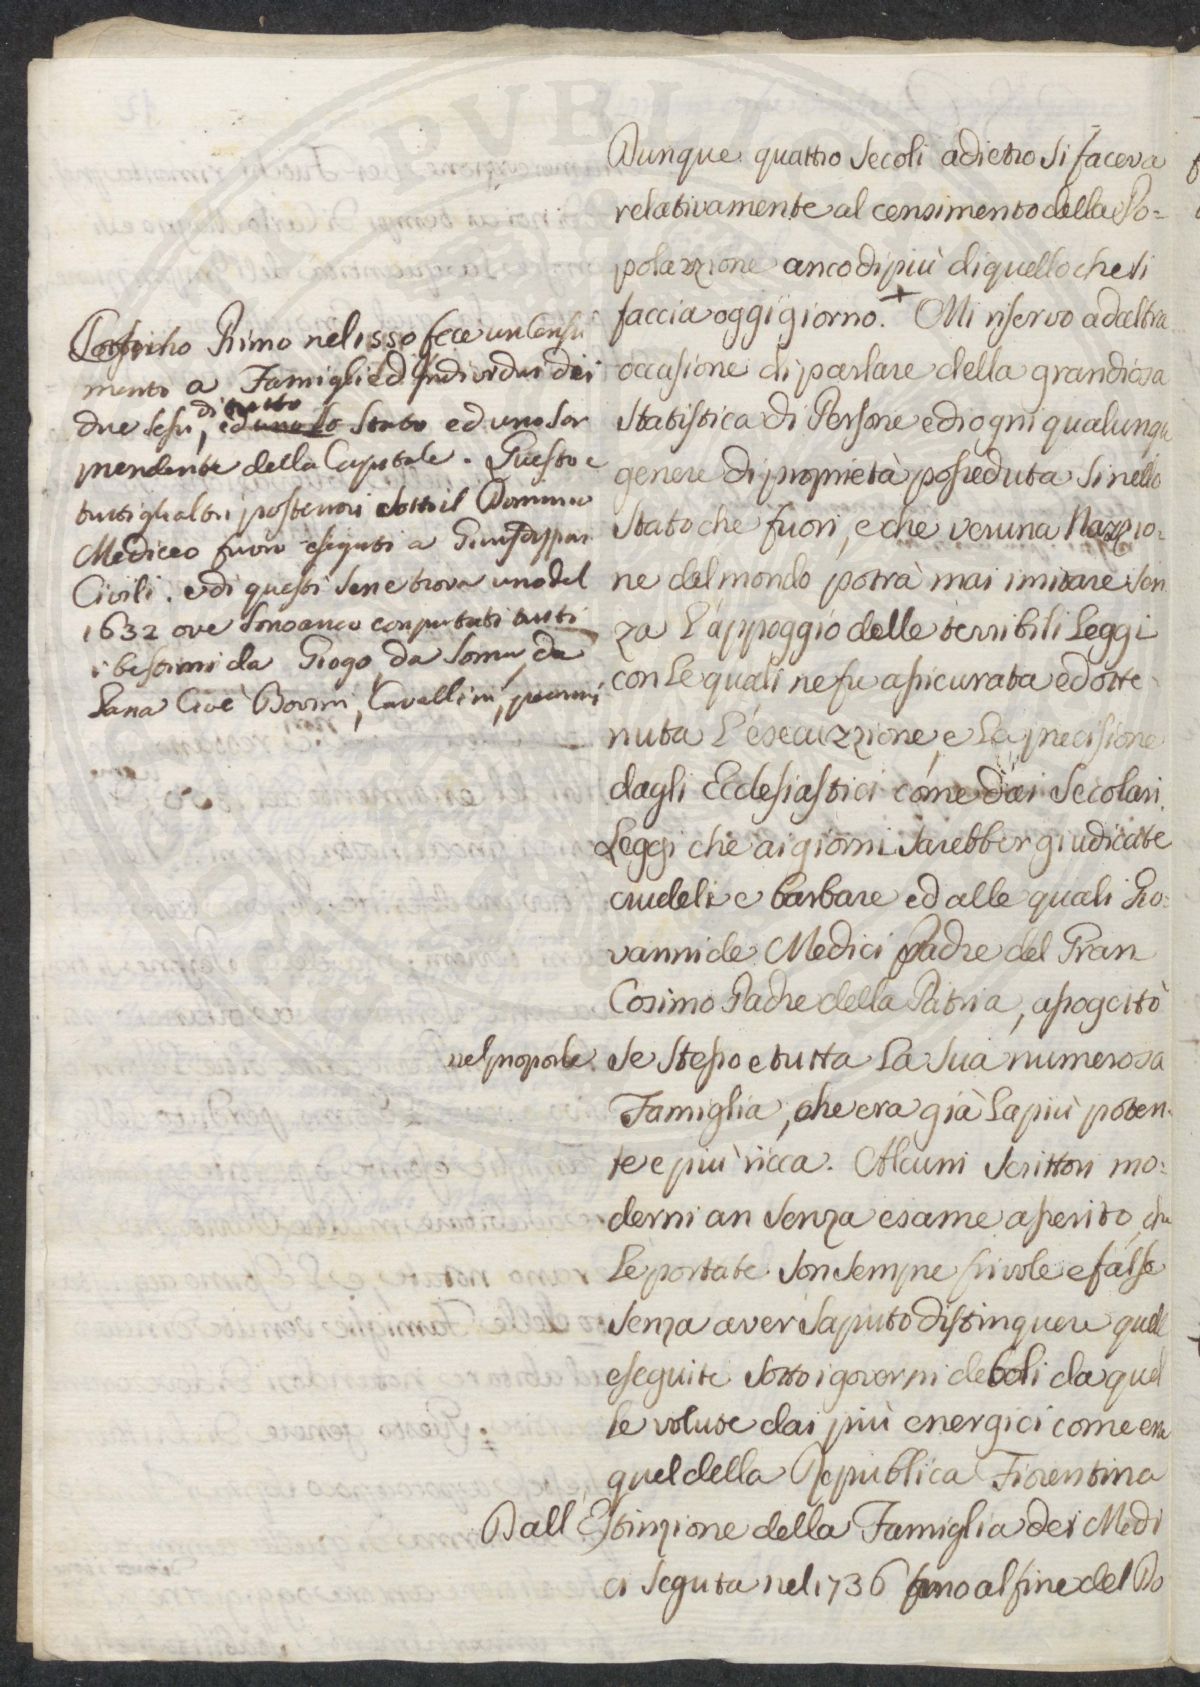 Dunque quattro Secoli adietro si faceva
relativamente al censimento della Po=
polazzione anco di più di quello che si
faccia oggi giorno.+ Mi riservo ad altra
occasione di parlare della grandiosa
Statistica di Persone e di ogni qualunque
genere di proprietà posseduta sì nello
Stato che fuori, e che veruna Nazzio=
ne del mondo potrà mai imitare sen
za l'appoggio delle terribili Leggi
con le quali ne fu assicurata ed otte
nuta l'esecuzzione, e la precisione
dagli Ecclesiastici come dai Secolari.
Leggi che ai giorni sarebber giudicate
crudeli e barbare ed alle quali Gio=
vanni de Medici Padre del Gran
Cosimo Padre della Patria, assogettò
nel proporle se stesso e tutta la sua numerosa
Famiglia, che era già la più poten=
te e più ricca. Alcuni Scrittori mo=
derni an senza esame asserito, che
le portate son sempre frivole e false
senza aver saputo distinguere quelle
eseguite sotto i governi deboli da quel
le volute dai più energici come era
quel della Republica Fiorentina
Dall'Estinzione della Famiglia dei Medi
ci seguta nel 1736 fino al fine del Do
Primo nel 1550 fece un Censi
mento a Famiglie ed Individui dei
due sessi, di tutto ed uno lo Stato ed uno sor
prendente della Capitale. Questo e
tutti gli altri posteriori sotto il Dominio
Mediceo furon eseguti a
Civili. e di questi se ne trova uno del
1632 ove sono anco computati tutti
i bestiami da Giogo, da Soma, da
Lana Cioè Bovini, Cavallini, pecorini